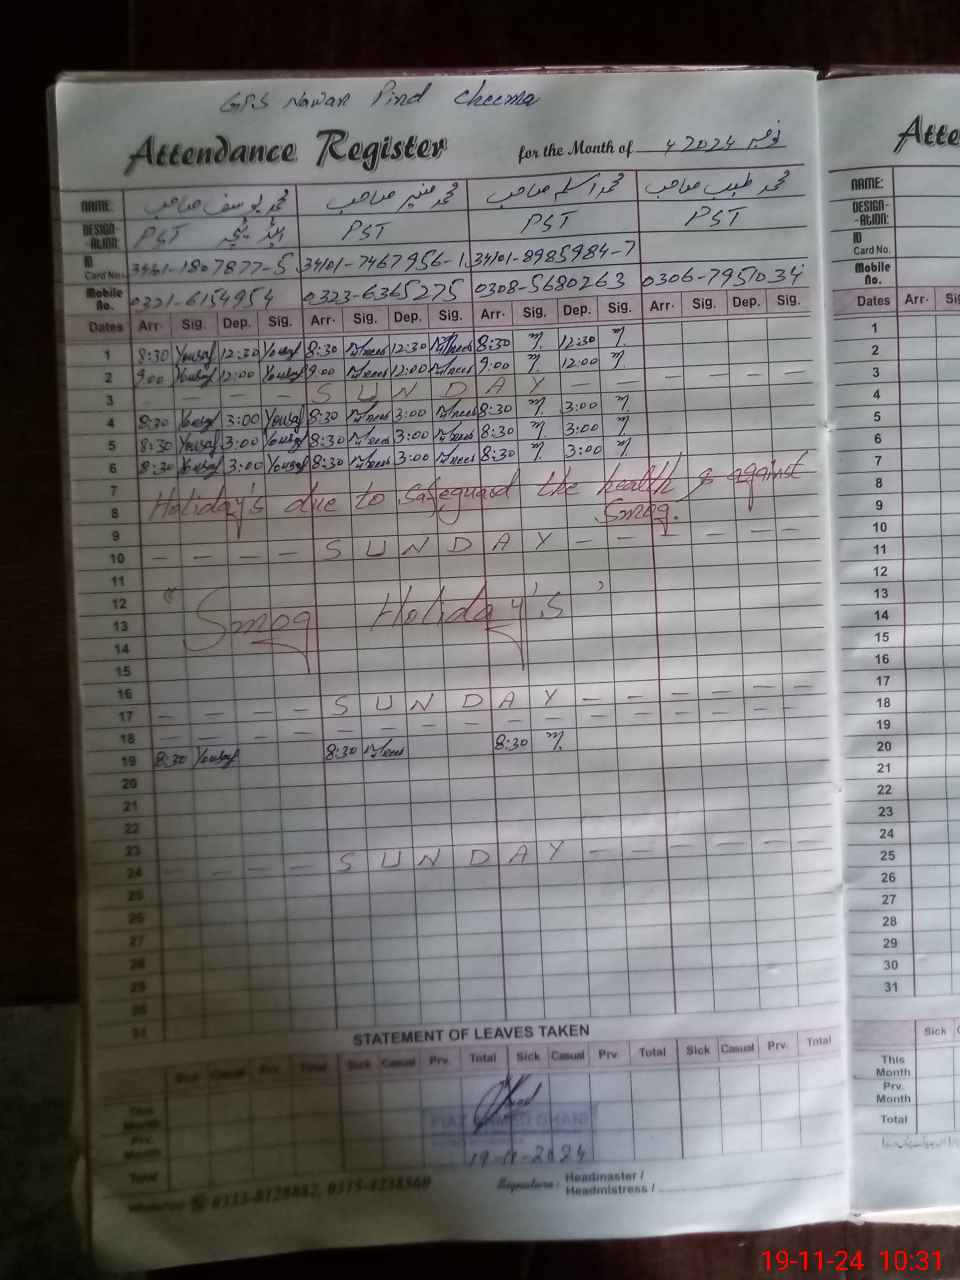 GPS Nawan Pind Cheema
Attendance Register for the Month of نومبر 2024ء
NAME: محمد یوسف صاحب محمد منیر صاحب محمد اسلم صاحب محمد طیب صاحب
DESIGN--ATION: PST ہیڈ ٹیچر PST PST PST
ID Card No. 34101-7467956-1 34101-8985984-7
Mobile No. 0321-6154954 0323-6365275 0308-5680263 0306-7951034
Dates Arr. Sig. Dep. Sig. Arr. Sig. Dep. Sig. Arr. Sig. Dep. Sig. Arr. Sig. Dep. Sig.
1 8:30 Yousaf 12:30 Yousaf 8:30 12:30 8:30 12:30
2 9:00 Yousaf 12:00 Yousaf 9:00 12:00 9:00 12:00
3 SUNDAY - -
4 8:30 Yousaf 3:00 Yousaf 8:30 3:00 8:30 3:00
5 8:30 Yousaf 3:00 Yousaf 8:30 3:00 8:30 3:00
6 8:30 Yousaf 3:00 Yousaf 8:30 3:00 8:30 3:00
7 Holiday's due to safeguard the health against
8 Smog.
9
10 - - - - SUNDAY - - - - - -
11
12 " Smog Holiday's '
13
14
15
16
17 - - - - SUNDAY - - - - - -
18 - - - - - - - - - - - - - - - -
19 8:30 Yousaf 8:30 8:30
20
21
22
23
24 - - - - SUNDAY - - - - - -
25
26
27
28
29
30
31
STATEMENT OF LEAVES TAKEN
Sick Casual Prv. Total Sick Casual Prv. Total Sick Casual Prv. Total Sick Casual Prv. Total
This Month
Prv. Month
Total
19-11-2024
Signature: Headmaster / Headmistress /
Atte
NAME:
DESIGN--ATION:
ID Card No.
Mobile No.
Dates Arr. Sig
1
2
3
4
5
6
7
8
9
10
11
12
13
14
15
16
17
18
19
20
21
22
23
24
25
26
27
28
29
30
31
Sick
This Month
Prv. Month
Total
19-11-24 10:31